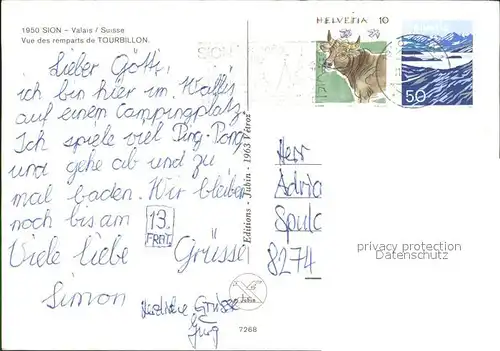 1950 SION – Valais / Suisse
Vue des remparts de TOURBILLON.
Lieber Götti,
ich bin hier im Wallis
auf einem Campingplatz.
Ich spiele viel Ping-Pong
und gehe ab und zu
mal baden. Wir bleiben
noch bis am 13.
FREI.
Viele liebe Grüsse
Simon
Herzliche Grüsse
Jürg
Editions - Jubin - 1963 Vétroz
Jubin
7268
HELVETIA 10
SION
50
Herr
Adria
8274
privacy protection
Datenschutz